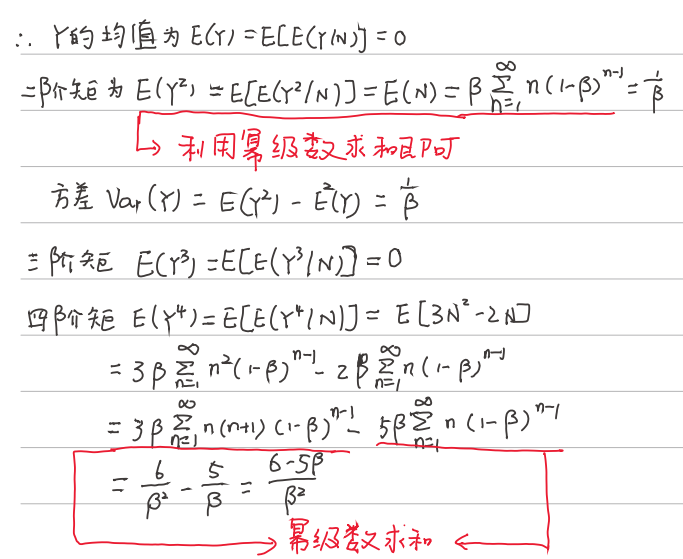 ∴ Y的均值为 E(Y)=E[E(Y/N)]=0
二阶矩为 E(Y²)=E[E(Y²/N)]=E(N)=β∑_{n=1}^{∞} n(1-β)^{n-1}=1/β
利用幂级数求和即可
方差 Var(Y)=E(Y²)-E²(Y)=1/β
三阶矩 E(Y³)=E[E(Y³/N)]=0
四阶矩 E(Y⁴)=E[E(Y⁴/N)]=E[3N²-2N]
=3β∑_{n=1}^{∞} n²(1-β)^{n-1}-2β∑_{n=1}^{∞} n(1-β)^{n-1}
=3β∑_{n=1}^{∞} n(n+1)(1-β)^{n-1}-5β∑_{n=1}^{∞} n(1-β)^{n-1}
=6/β²-5/β=(6-5β)/β²
幂级数求和